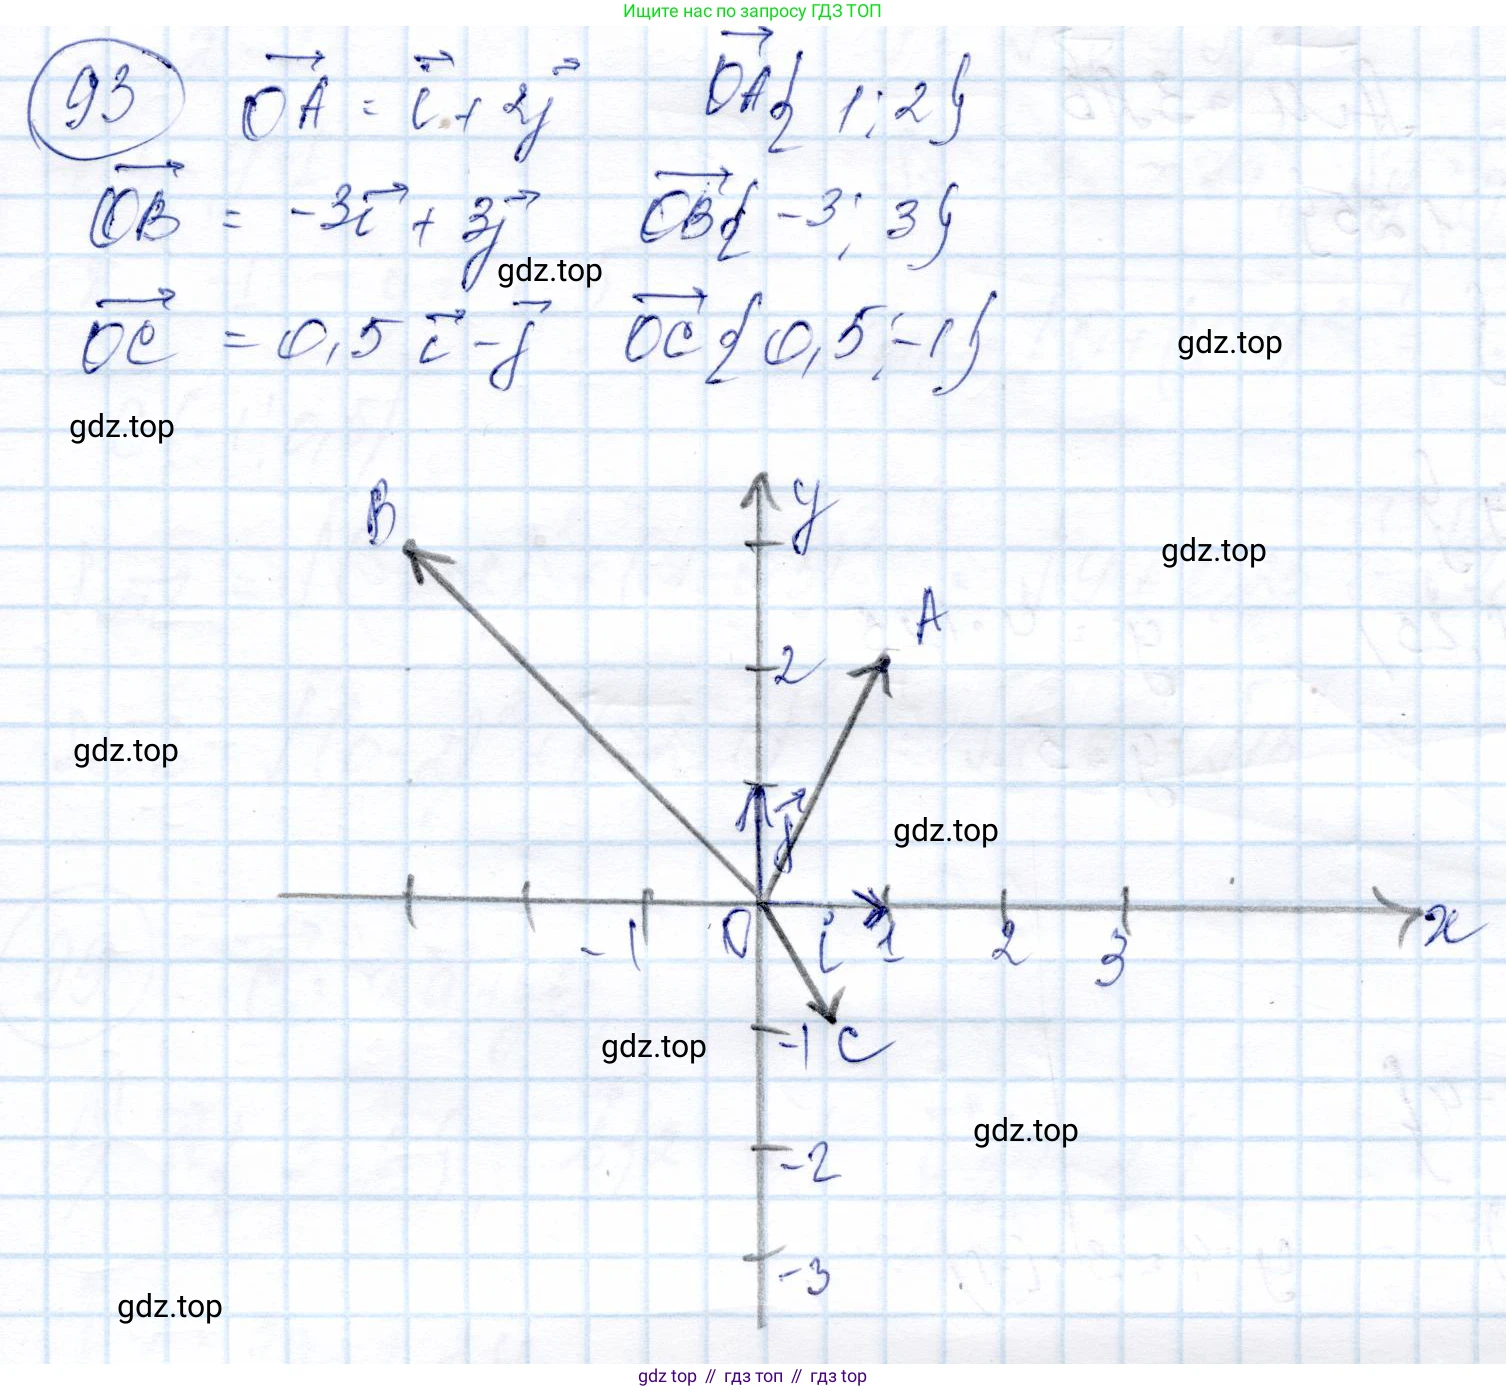 Ищите нас по запросу ГДЗ ТОП
93 OA = i + 2j OA{1; 2}
OB = -3i + 3j OB{-3; 3}
gdz.top
OC = 0,5i - j OC{0,5; -1}
gdz.top
gdz.top
B y
gdz.top
A
2
gdz.top
j
gdz.top
-1 O i 1 2 3 x
gdz.top
-1 C
gdz.top
-2
-3
gdz.top
gdz top // гдз топ // gdz.top